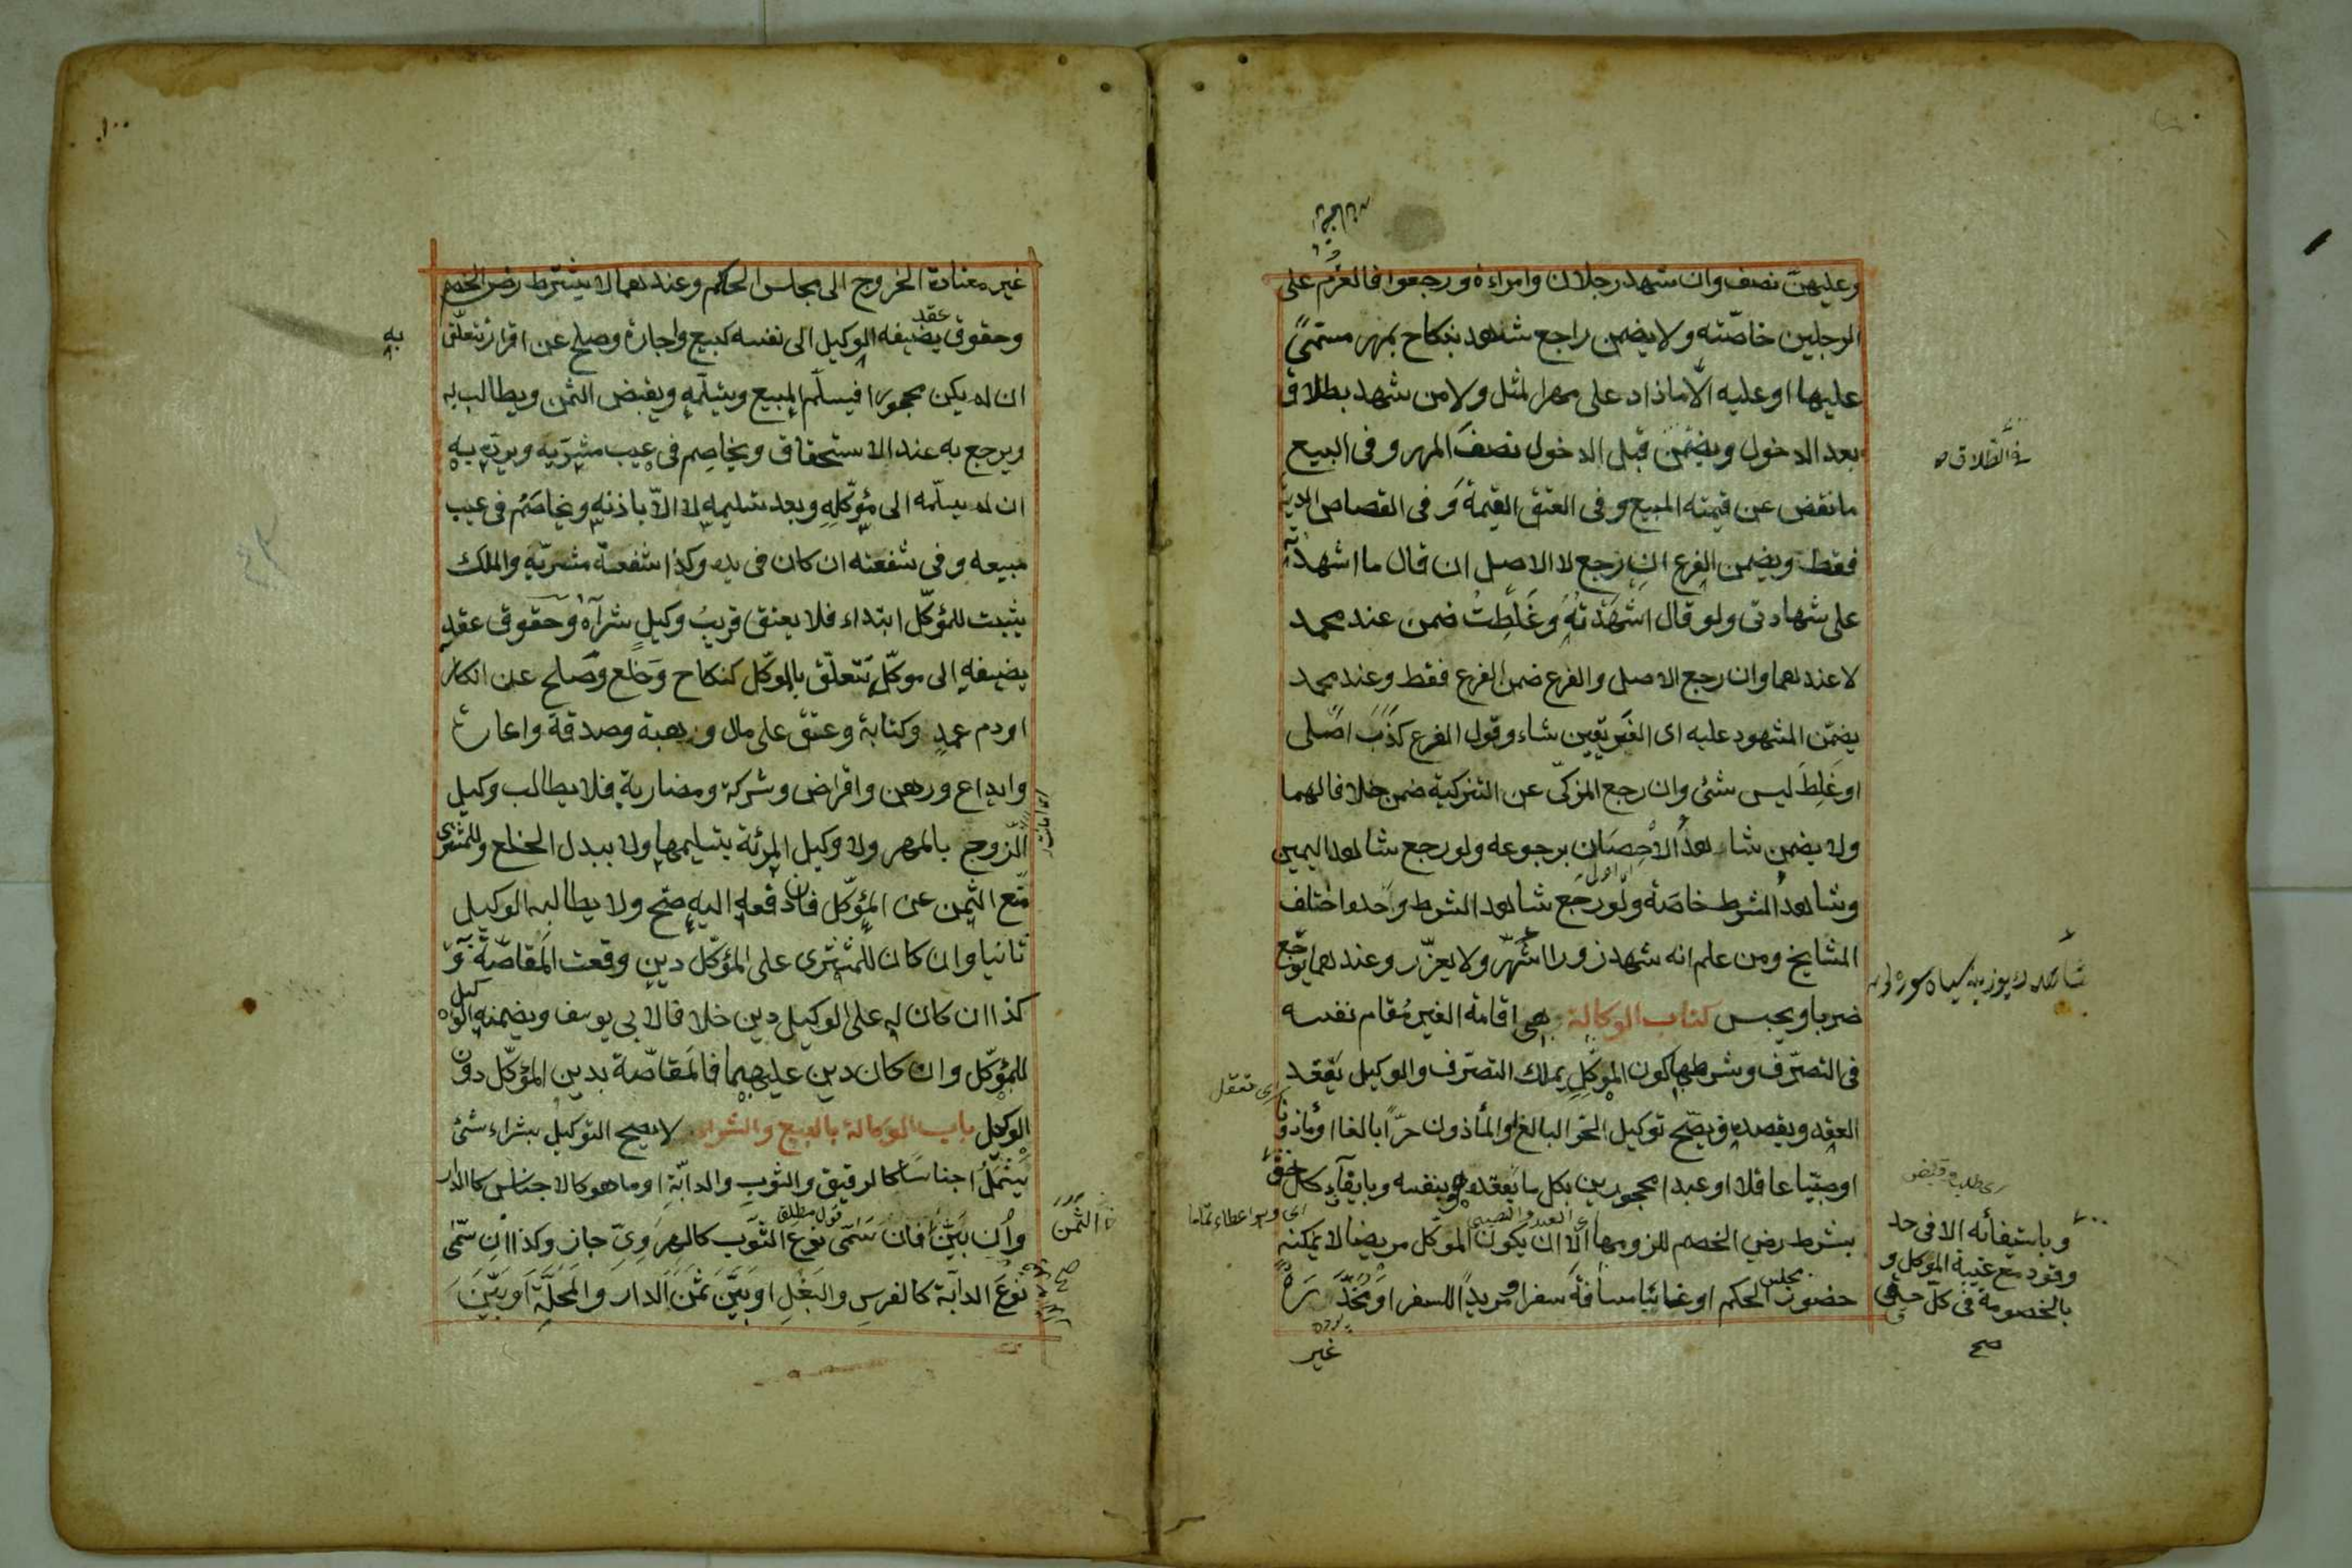 وعليهن نصف وان شهد رجلان وامراءة ورجعوا فالغرم على
الرجلين خاصّته ولا يضمن راجع شاهد بنكاح بمهر مسمّىً
عليها او عليه الّا ماذاد على مهر المثل ولا من شهد بطلاق
بعد الدخول ويضمن قبل الدخول نصفَ المهر وفى البيع
ما نقض عن قيمته المبيع وفى العتق القيمة وفى القصاص الدية
فقط ويضمن الفرع ان رجع لا الاصل ان قال ما اشهدته
على شهادتى ولو قال اَشْهَدْتهُ وغَلِطتُ ضمن عند محمد
لا عندهما وان رجع الاصل والفرع ضمن الفرع فقط وعند محمد
يضمّن المشهود عليه اى الفريقين شاء وقول الفرع كذَبَ اصلى
او غَلِطَ ليس شئ وان رجع المزكّى عن التزكية ضمن خلافا لهما
ولا يضمن شاهدُ الاحصان برجوعه ولو رجع شاهد اليمين
وشاهدُ الشرط خاصّة ولو رجع شاهد الشرط وحده اختلف
المشايخ ومن علم انه شهد زورا شُهّر ولا يعزّر وعندهما يوجع
ضربا ويحبس كتاب الوكالة هى اقامة الغير مُقام نفسه
فى التصرّف وشرطها كون الموكّل يملك التصرّف والوكيل يعقد
العقد ويقصده فيصّح توكيل الحرّ البالغ او المأذون حرّاً بالغا او مأذونا
او صبيّا عاقلا او عبدا محجورين بكل ما يعقده هو بنفسه وبايفآء كل حق
بشرط رضى الخصم للزومها الّا ان يكون الموكّل مريضا لا يمكنه
حضور مجلس الحكم او غائبا مسافة سفر او مريداً للسفر او مُخَدَّرَة
غير
فى الطلاق
وباستيفائه الا فى حد
وقود مع غيبة الموكل و
بالخصومة فى كل حق
صح
١٠٠
غير معتادة الخروج الى مجلس الحكم وعندهما لا يشترط رضى الخصم
وحقوق عقد يضيفه الوكيل الى نفسه كبيع واجارة وصلح عن اقرار تتعلّق
به
ان لم يكن محجورا فيسلّم المبيع ويتسلّمه ويقبض الثمن ويطالب به
ويرجع به عند الاستحقاق ويخاصِم فى عيب مشريه ويردّه به
ان لم يسلّمه الى مؤكّلِهِ وبعد تسليمه لا الّا باذنه ويخاصَمُ فى عيب
مبيعه وفى شفعته ان كان فى يده وكذا شفعة مشريّه والملك
يثبت للمؤكّل ابتداء فلا يعتق قريبُ وكيلٍ شرآه وحقوق عقد
يضيفه الى موكّلٍ تتعلّق بالموكّل كنكاح وخلع وصلح عن انكار
او دم عمدٍ وكتابة وعتق على مال وهبة وصدقة واعارة
وايداع ورهن واقراض وشركة ومضاربة فلا يطالب وكيل
الزّوج بالمهر ولا وكيل المرئة بتسليمها ولا ببدل الخلع وللمشترى
مّنع الثمن عن المؤكّل فان دفعه اليه صّح ولا يطالبه الوكيل
ثانيا وان كان للمشترى على المؤكّل دين وقعت المقاصّة
كذا ان كان له على الوكيل دين خلافا لابى يوسف ويضمنه الوكيل
للمؤكّل وان كان دين عليهما فالمقاصّة بدين المؤكّل دون
الوكيل باب الوكالة بالبيع والشراء لا يصح التوكيل بشراء شئ
يَشْمَلُ اجناسا كالرقيق والثوب والدابّة او ما هو كالاجناس كالدار
وان بيّن الثمن فان سَمّى نوعَ الثوب كالهروىّ جاز وكذا ان سَمّى
نوعَ الدابة كالفرسِ والبَغْلِ او بيّنَ ثمنَ الدار والمَحلّةَ او بيّنَ